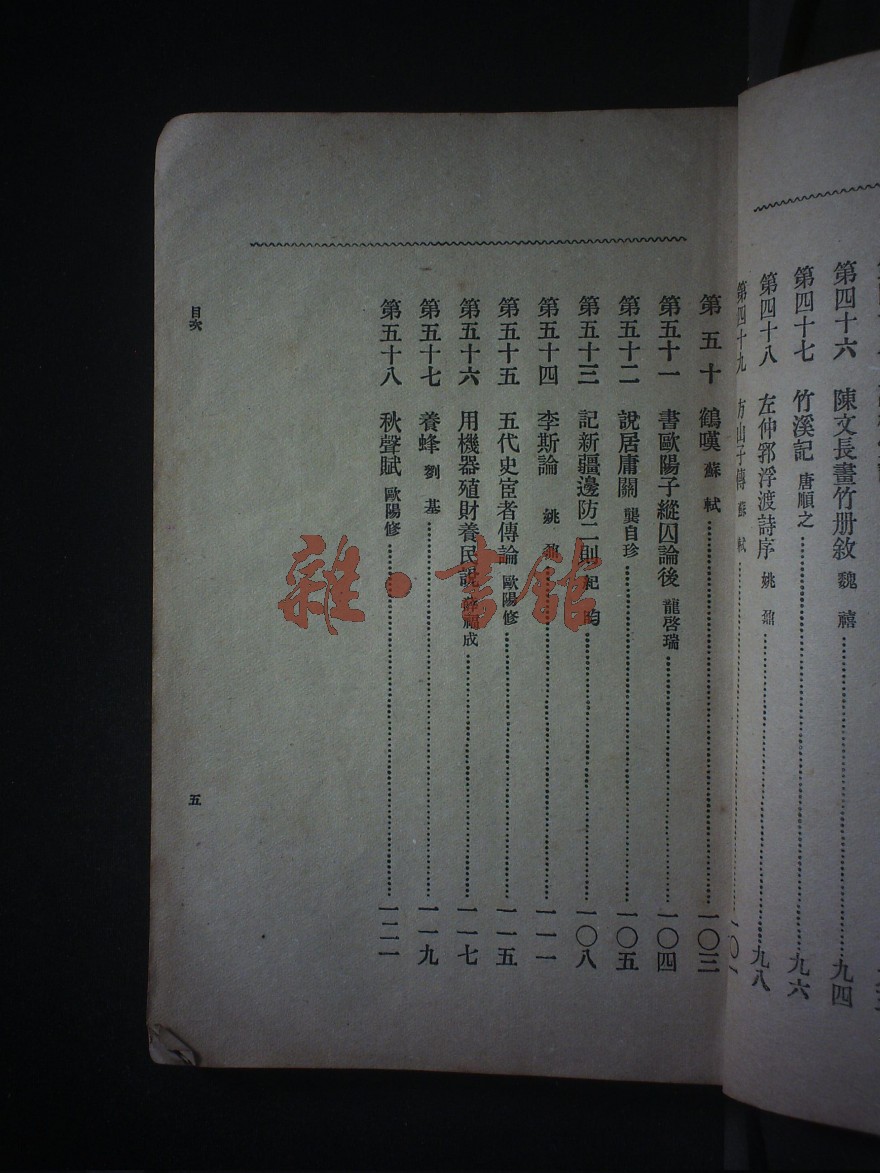 第四十六　陳文長畫竹册敘　魏　禧……九四
第四十七　竹溪記　唐順之……九六
第四十八　左仲郛浮渡詩序　姚　鼐……九八
第四十九　方山子傳　蘇　軾……一〇一
第五十　鶴嘆　蘇　軾……一〇三
第五十一　書歐陽子縱囚論後　龍啓瑞……一〇四
第五十二　說居庸關　龔自珍……一〇五
第五十三　記新疆邊防二則　紀　昀……一〇八
第五十四　李斯論　姚　鼐……一一一
第五十五　五代史宦者傳論　歐陽修……一一五
第五十六　用機器殖財養民說　薛福成……一一七
第五十七　養蜂　劉　基……一一九
第五十八　秋聲賦　歐陽修……一二一
目次
五
雜·書館